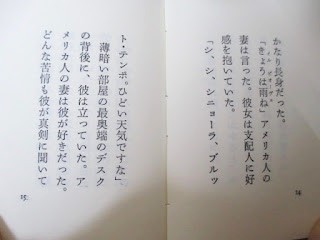 かなり長身だった。
「きょうは雨ね」アメリカ人の
妻は言った。彼女は支配人に好
感を抱いていた。
「シ、シ、シニョーラ、ブルッ
24
ト・テンポ。ひどい天気ですな」
薄暗い部屋の最奥端のデスク
の背後に、彼は立っていた。ア
メリカ人の妻は彼が好きだった。
どんな苦情も彼が真剣に聞いて
25